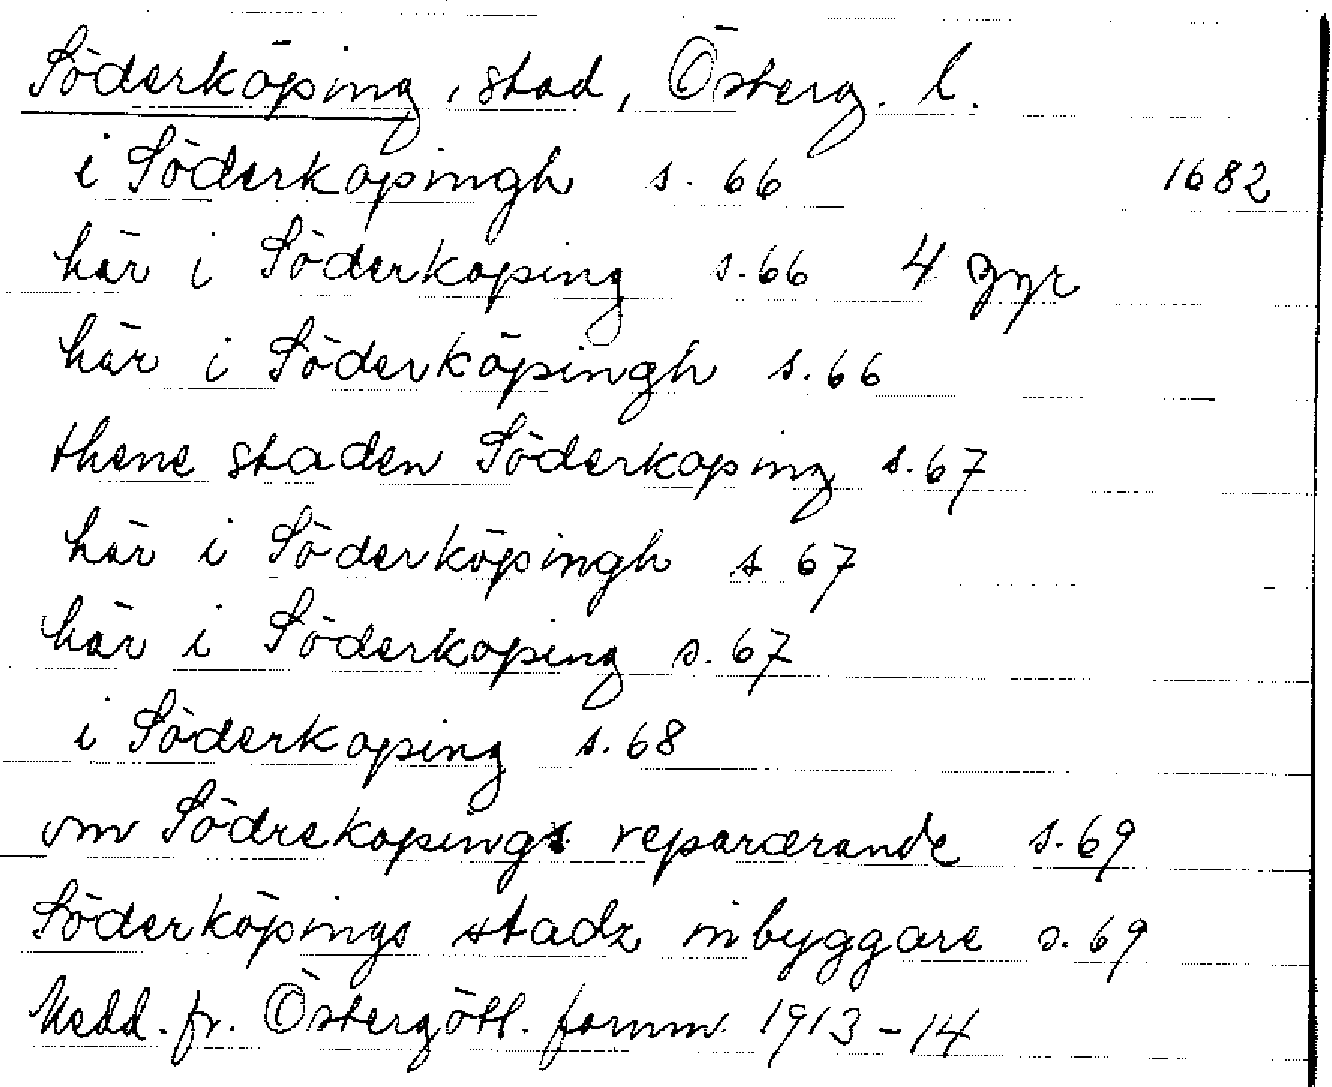 Söderköping, stad, Österg. l.
i Söderkopingh s. 66 1682
här i Söderkoping s. 66 4 ggr
här i Söderköpingh s. 66
thene staden Söderkoping s. 67
här i Söderköpingh s 67
här i Söderkoping s. 67
i Söderkoping s. 68
om Södrekopings reparærande s. 69
Söderköpings stadz inbyggare s. 69
Medd. fr. Östergötl. fornm. 1913-14